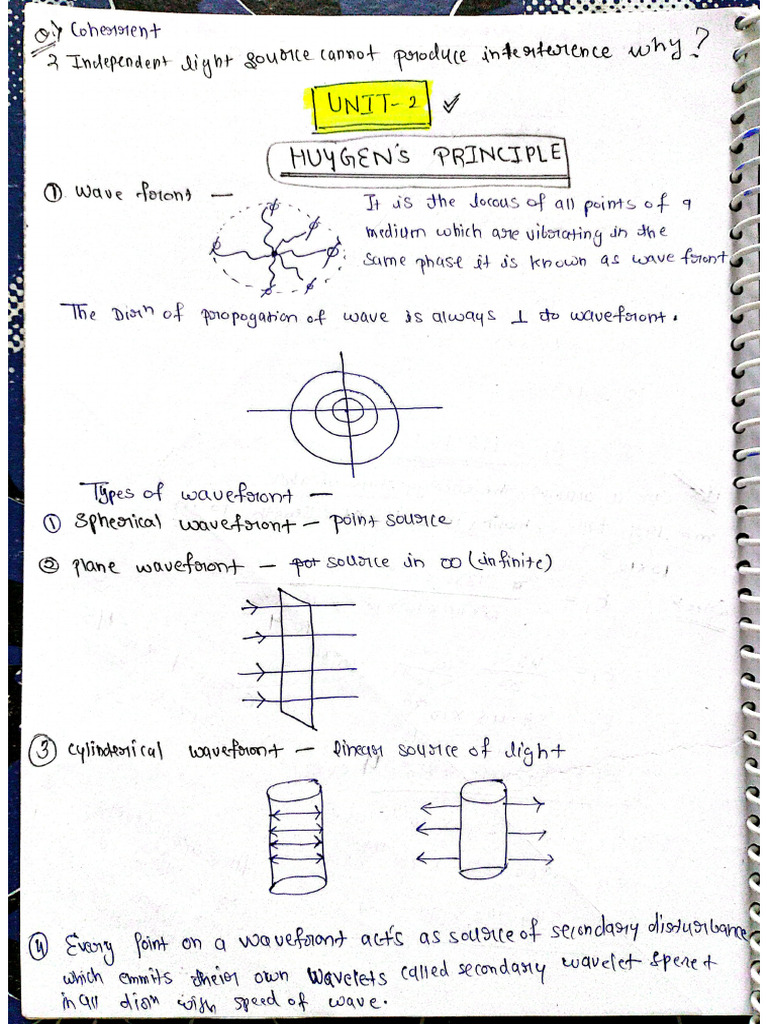 Q.) Coherent
2 Independent light source cannot produce interference why?
UNIT-2 ✓
HUYGEN'S PRINCIPLE
① Wave front —
It is the locous of all points of a
medium which are vibrating in the
same phase it is known as wave front
The Dirⁿ of propogation of wave is always ⊥ to wavefront.
Types of wavefront —
① Spherical wavefront - point source
② plane wavefront - source in ∞ (infinite)
③ cylinderical wavefront - linear source of light
④ Every point on a wavefront act's as source of secondary disturbance
which emmits their own wavelets called secondary wavelet
in all dirn with speed of wave.